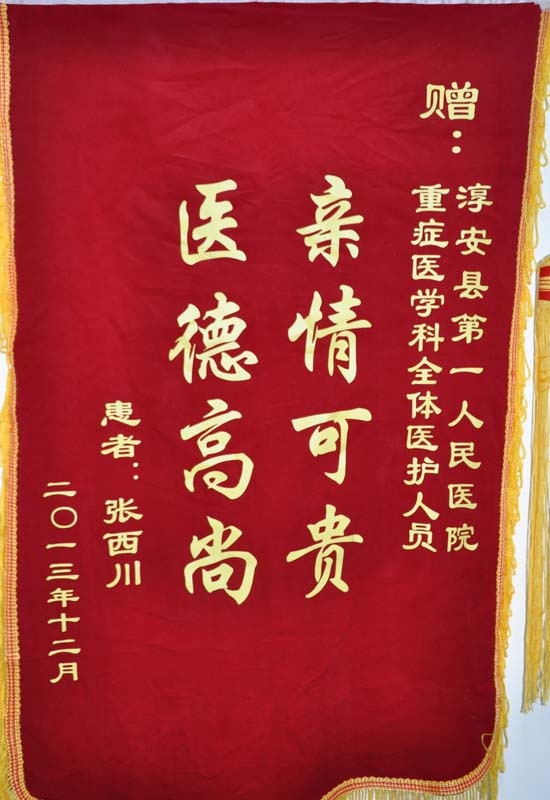 赠：
淳安县第一人民医院
重症医学科全体医护人员
亲情可贵
医德高尚
患者：张西川
二〇一三年十二月